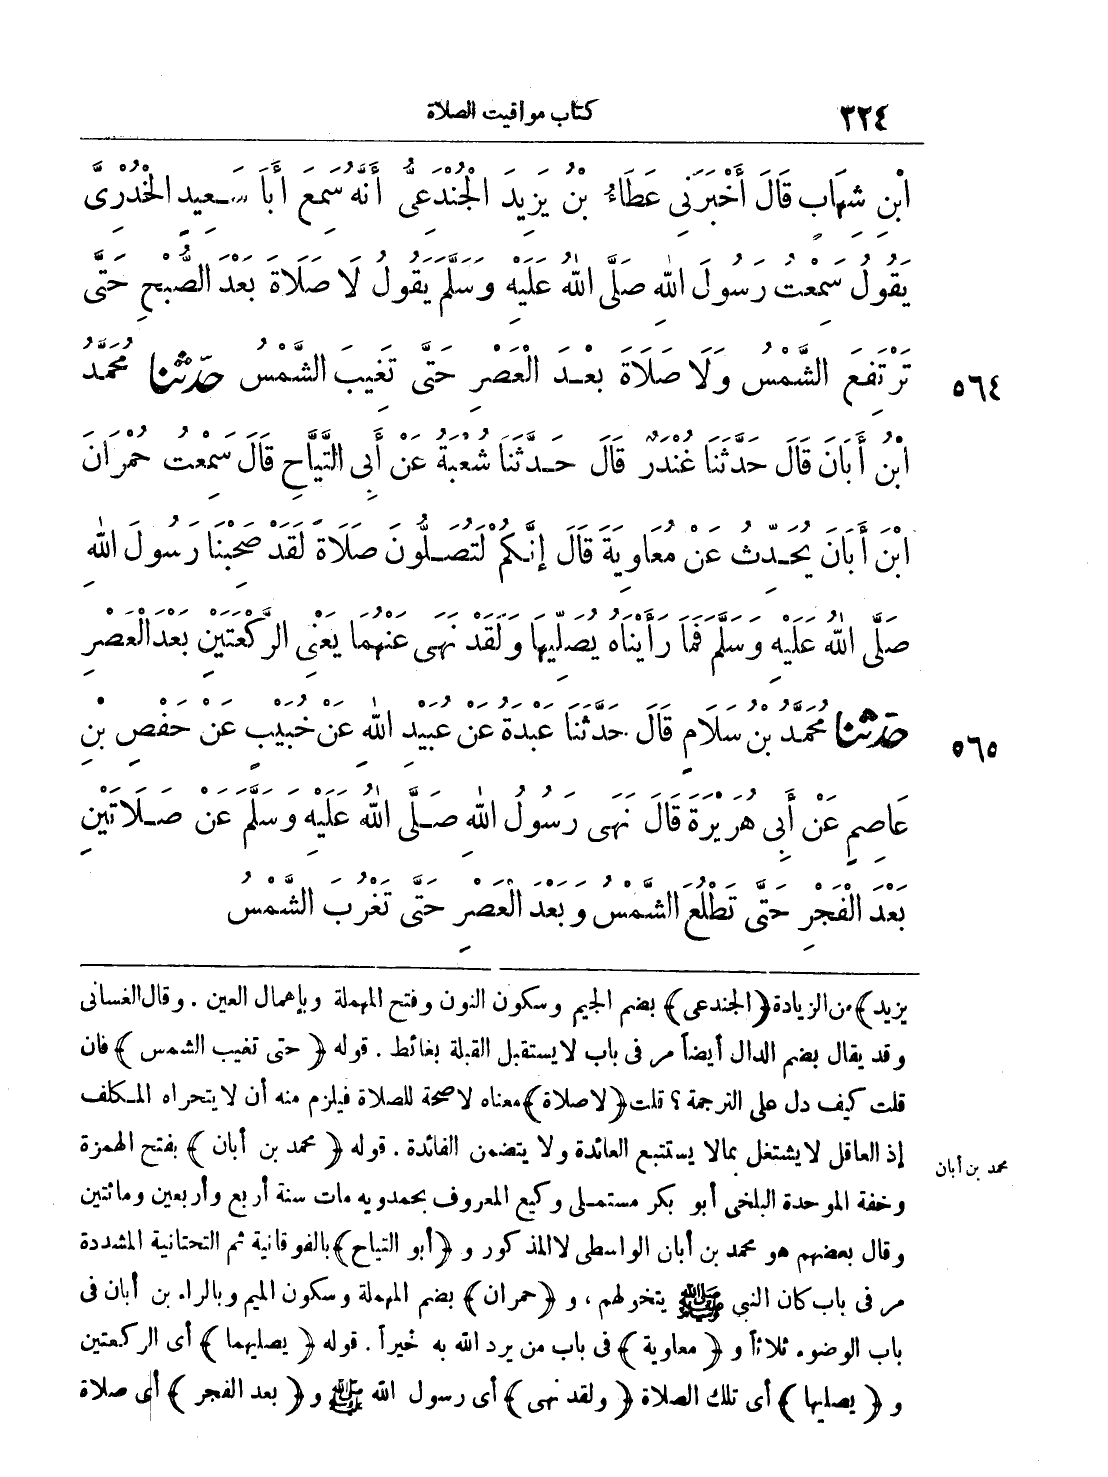 ٣٢٤
كتاب مواقيت الصلاة
ابْنِ شِهَابٍ قَالَ أَخْبَرَنِي عَطَاءُ بْنُ يَزِيدَ الْجُنْدَعِيُّ أَنَّهُ سَمِعَ أَبَا سَعِيدٍ الْخُدْرِيَّ
يَقُولُ سَمِعْتُ رَسُولَ اللهِ صَلَّى اللهُ عَلَيْهِ وَسَلَّمَ يَقُولُ لَا صَلَاةَ بَعْدَ الصُّبْحِ حَتَّى
٥٦٤ تَرْتَفِعَ الشَّمْسُ وَلَا صَلَاةَ بَعْدَ الْعَصْرِ حَتَّى تَغِيبَ الشَّمْسُ حَدَّثَنَا مُحَمَّدُ
ابْنُ أَبَانَ قَالَ حَدَّثَنَا غُنْدَرٌ قَالَ حَدَّثَنَا شُعْبَةُ عَنْ أَبِي التَّيَّاحِ قَالَ سَمِعْتُ حُمْرَانَ
ابْنَ أَبَانَ يُحَدِّثُ عَنْ مُعَاوِيَةَ قَالَ إِنَّكُمْ لَتُصَلُّونَ صَلَاةً لَقَدْ صَحِبْنَا رَسُولَ اللهِ
صَلَّى اللهُ عَلَيْهِ وَسَلَّمَ فَمَا رَأَيْنَاهُ يُصَلِّيهَا وَلَقَدْ نَهَى عَنْهُمَا يَعْنِي الرَّكْعَتَيْنِ بَعْدَ الْعَصْرِ
٥٦٥ حَدَّثَنَا مُحَمَّدُ بْنُ سَلَامٍ قَالَ حَدَّثَنَا عَبْدَةُ عَنْ عُبَيْدِ اللهِ عَنْ خُبَيْبٍ عَنْ حَفْصِ بْنِ
عَاصِمٍ عَنْ أَبِي هُرَيْرَةَ قَالَ نَهَى رَسُولُ اللهِ صَلَّى اللهُ عَلَيْهِ وَسَلَّمَ عَنْ صَلَاتَيْنِ
بَعْدَ الْفَجْرِ حَتَّى تَطْلُعَ الشَّمْسُ وَبَعْدَ الْعَصْرِ حَتَّى تَغْرُبَ الشَّمْسُ
يزيد) من الزيادة (الجندعى) بضم الجيم وسكون النون وفتح المهملة وبإهمال العين . وقال الغسانى
وقد يقال بضم الدال أيضاً مر فى باب لا يستقبل القبلة بغائط . قوله (حتى تغيب الشمس) فان
قلت كيف دل على الترجمة ؟ قلت (لا صلاة) معناه لا صحة للصلاة فيلزم منه أن لا يتحراه المكلف
إذ العاقل لا يشتغل بمالا يستتبع العائدة ولا يتضمن الفائدة . قوله (محمد بن أبان) بفتح الهمزة
محمد بن أبان
وخفة الموحدة البلخى أبو بكر مستملى وكيع المعروف بحمدويه مات سنة أربع وأربعين ومائتين
وقال بعضهم هو محمد بن أبان الواسطى لا المذكور و (أبو التياح) بالفوقانية ثم التحتانية المشددة
مر فى باب كان النبي ﷺ يتخولهم ، و (حمران) بضم المهملة وسكون الميم وبالراء بن أبان فى
باب الوضوء ثلاثاً و (معاوية) فى باب من يرد الله به خيراً . قوله (يصليهما) أى الركعتين
و (يصليها) أى تلك الصلاة (ولقد نهى) أى رسول الله ﷺ و (بعد الفجر) أى صلاة